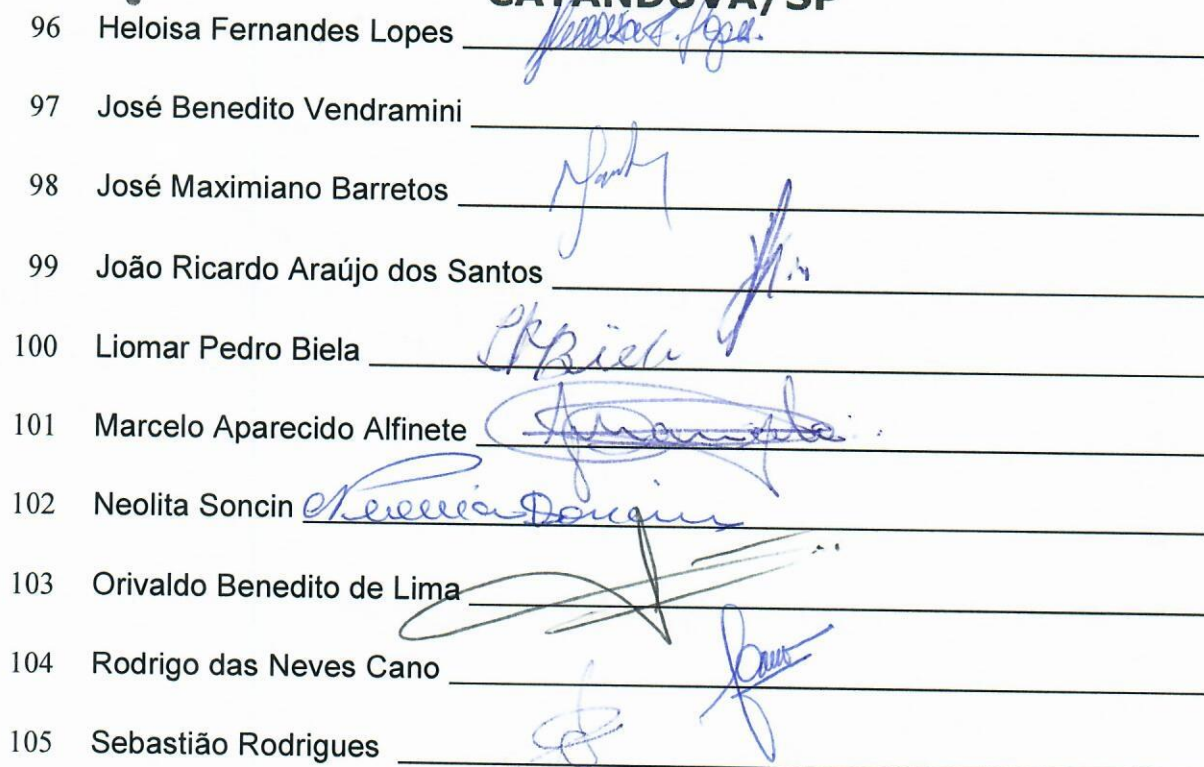 CATANDUVA/SP
96 Heloisa Fernandes Lopes
97 José Benedito Vendramini
98 José Maximiano Barretos
99 João Ricardo Araújo dos Santos
100 Liomar Pedro Biela
101 Marcelo Aparecido Alfinete
102 Neolita Soncin
103 Orivaldo Benedito de Lima
104 Rodrigo das Neves Cano
105 Sebastião Rodrigues